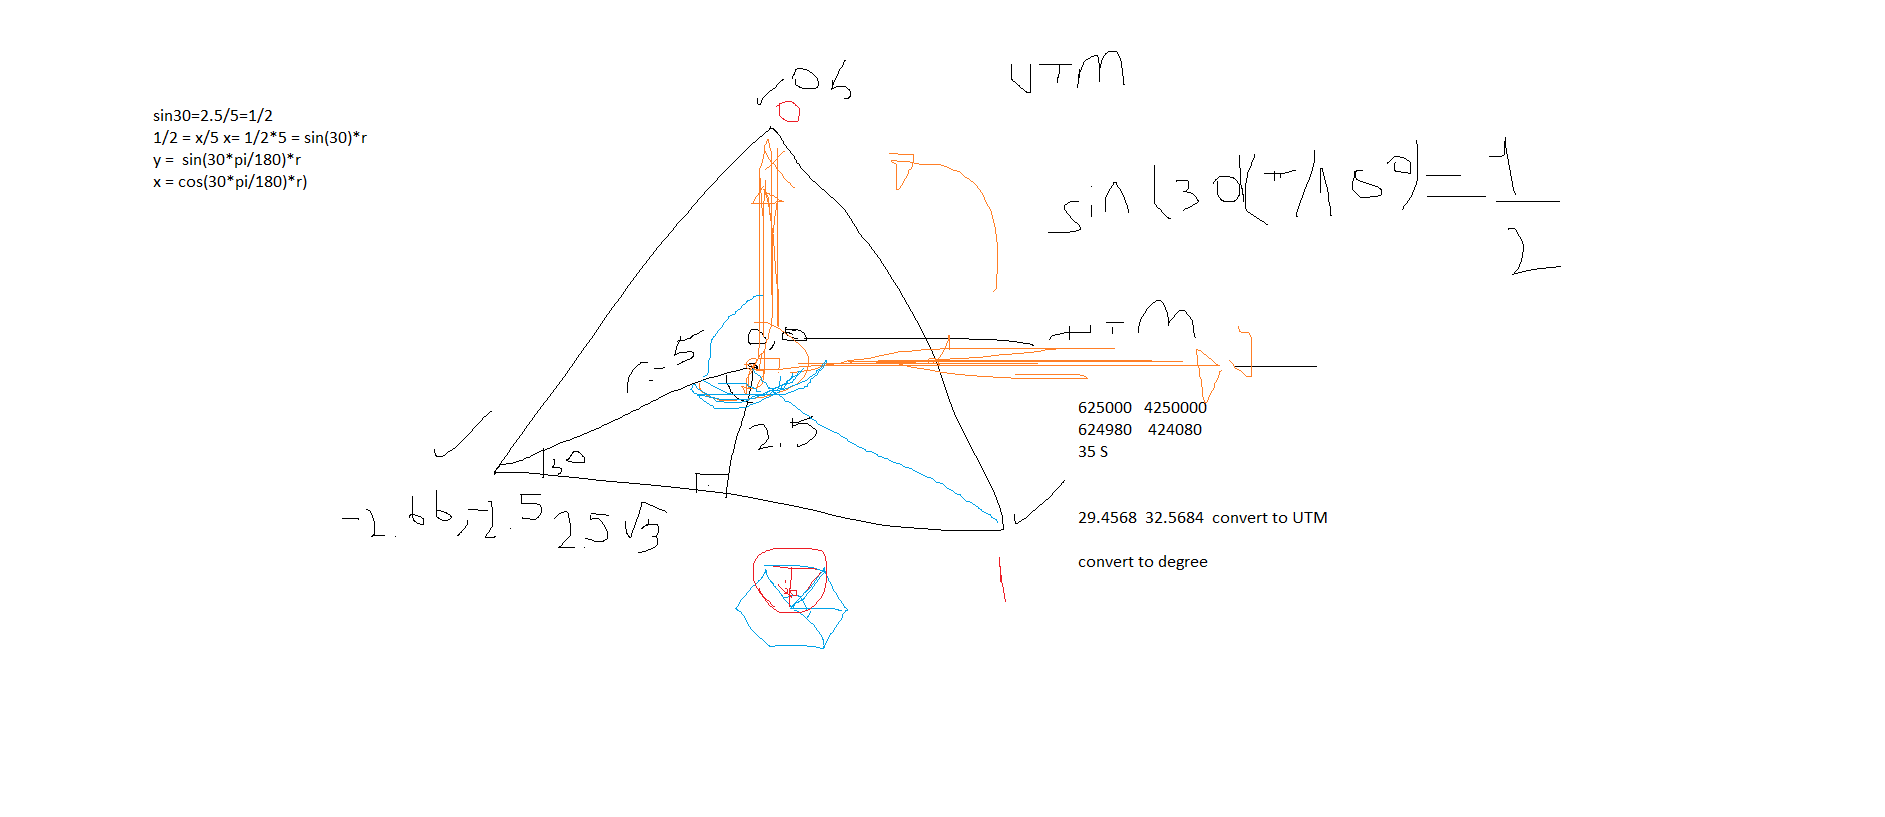 sin30=2.5/5=1/2
1/2 = x/5 x= 1/2*5 = sin(30)*r
y =  sin(30*pi/180)*r
x = cos(30*pi/180)*r)
UTM
0,0
r=5
2.5
30
-2.66,-2.5
2.5√3
625000   4250000
624980    424080
35 S
29.4568  32.5684  convert to UTM
convert to degree